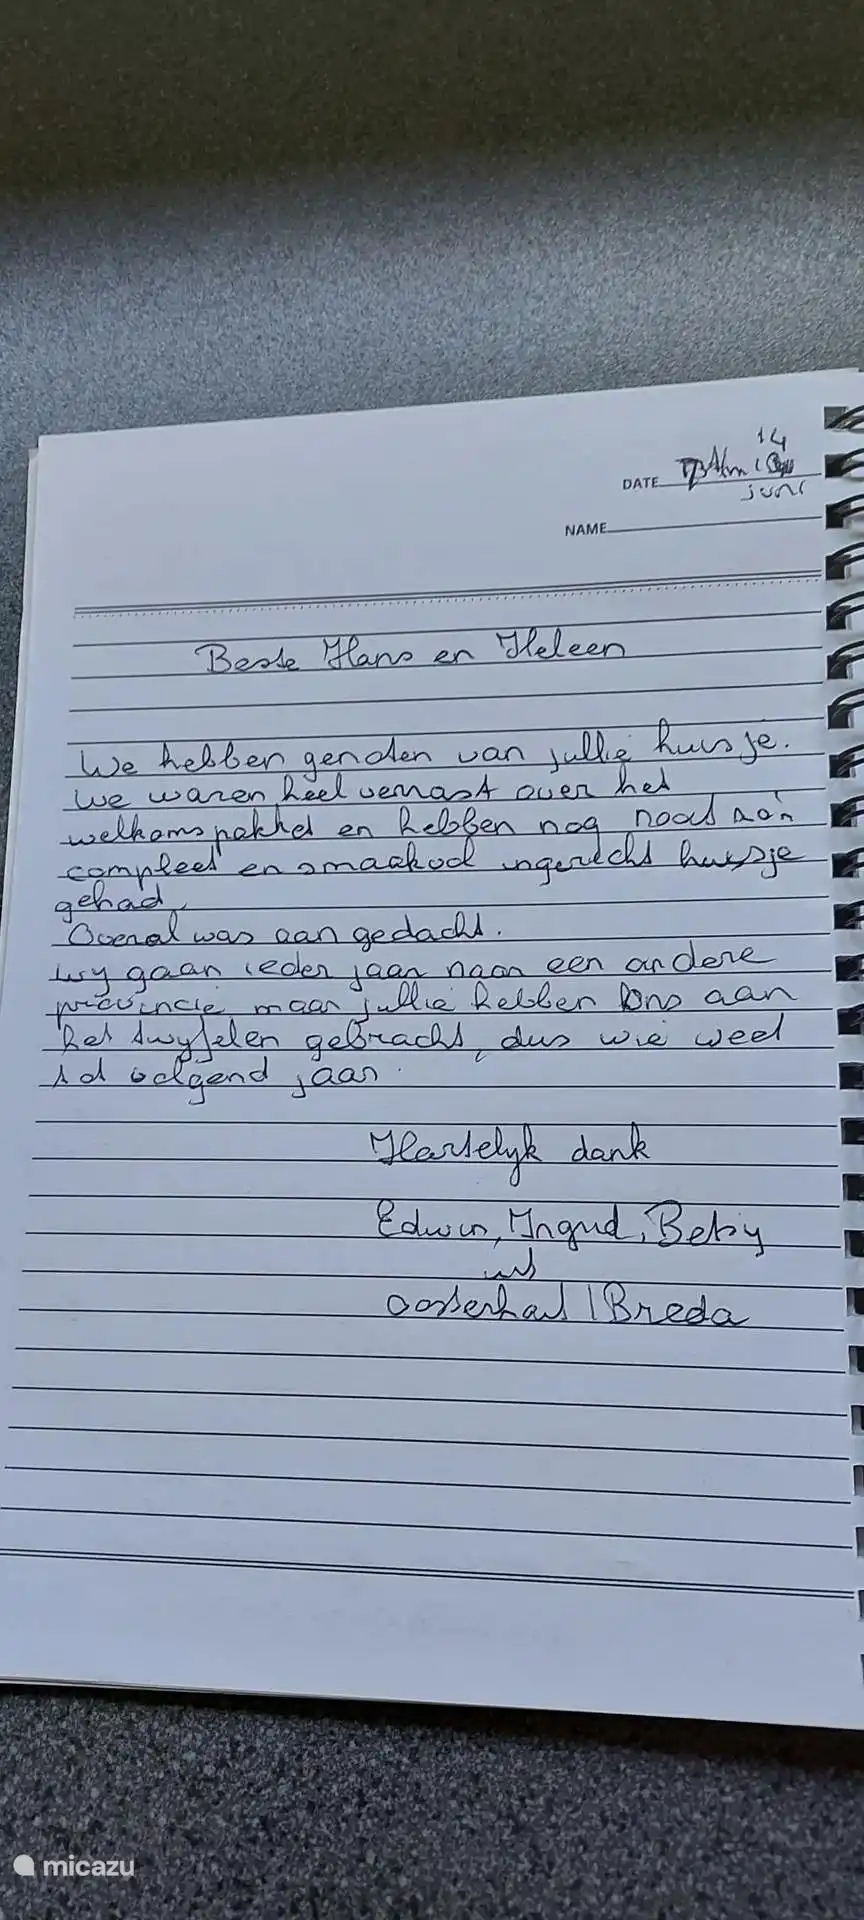 14
DATE t/m
juni
NAME
Beste Hans en Heleen
We hebben genoten van jullie huisje.
We waren heel verrast over het
welkomspakket en hebben nog nooit zo'n
compleet en smaakvol ingericht huisje
gehad.
Overal was aan gedacht.
Wij gaan ieder jaar naar een andere
provincie maar jullie hebben ons aan
het twijfelen gebracht, dus wie weet
tot volgend jaar.
Hartelijk dank
Edwin, Ingrid, Betsy
uit
Oosterhout / Breda
micazu